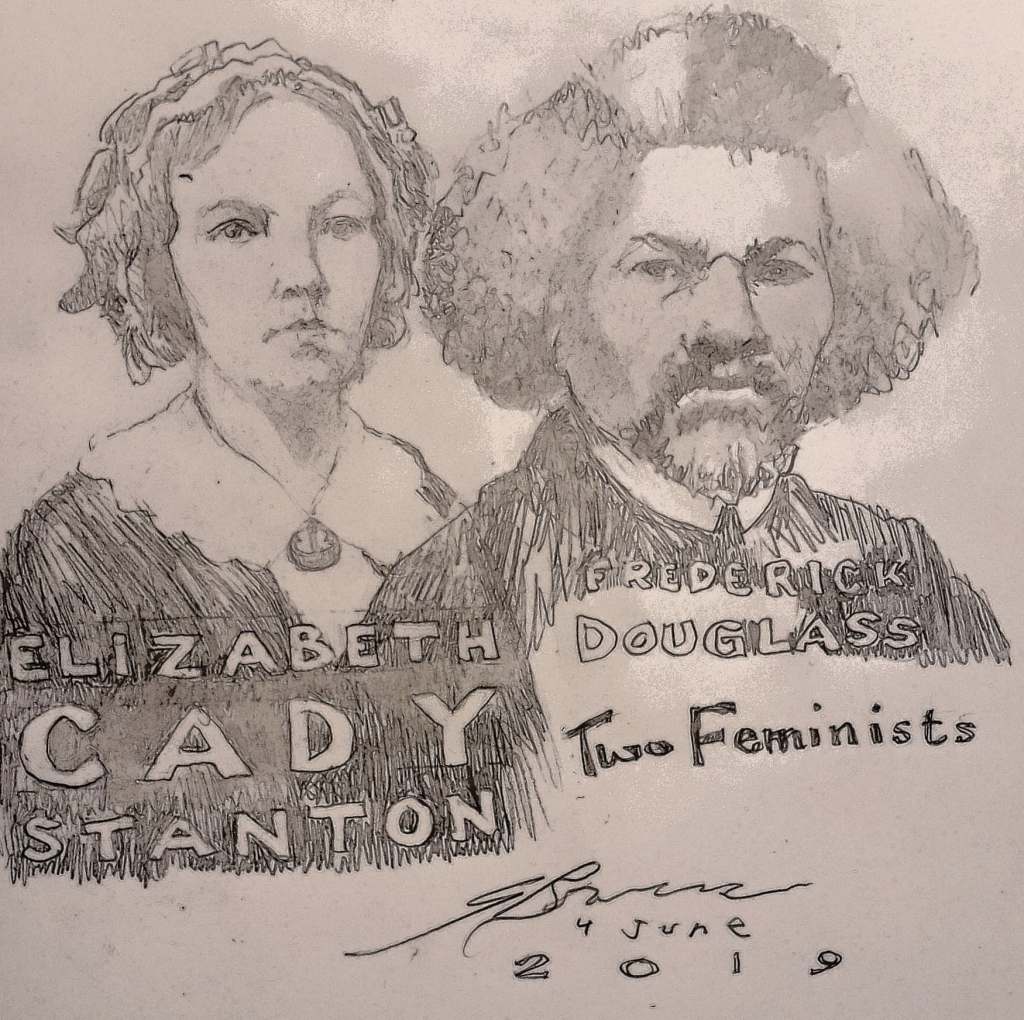 ELIZABETH
CADY
STANTON
FREDERICK
DOUGLASS
Two Feminists
4 June
2019